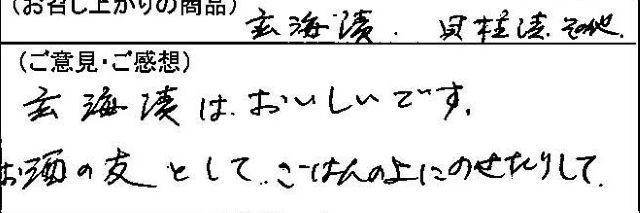 (お召し上がりの商品)
玄海漬. 貝柱漬. その他.
(ご意見・ご感想)
玄海漬は、おいしいです。
お酒の友として、ごはんの上にのせたりして、